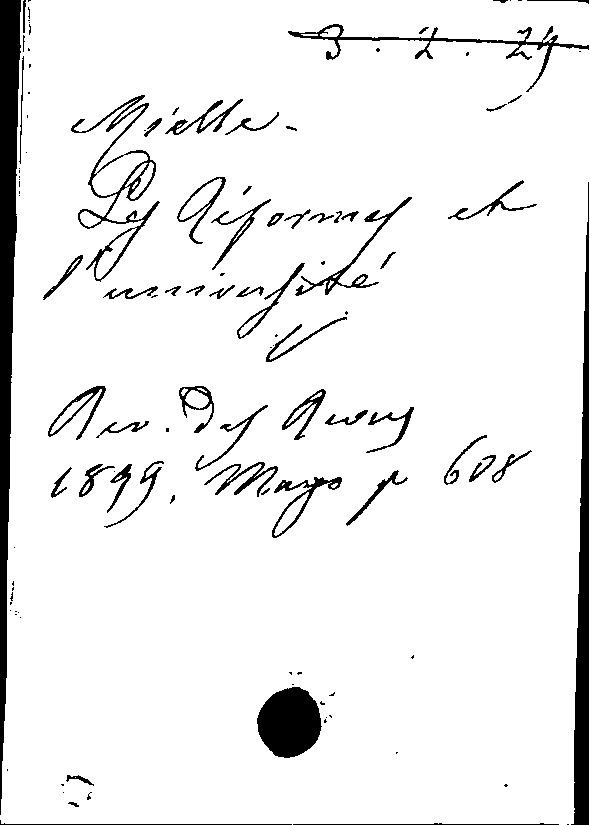 3 . 2 . 29
Mielle -
Les Réformes et
l'université
V
Rev. des Revues
1899, Mayo p 608